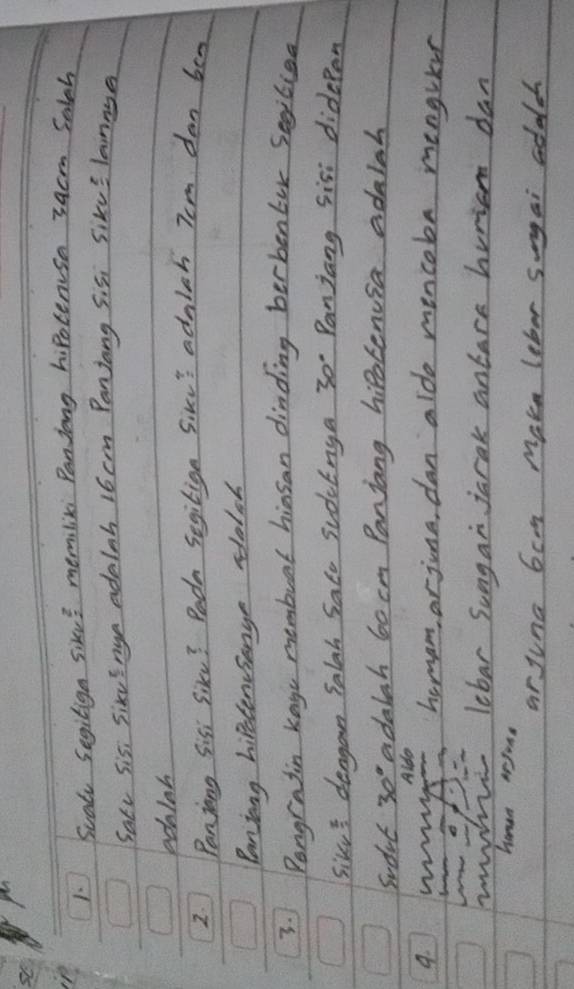 1. Suatu segitiga siku² memiliki Panjang hiPotenusa 34cm Salah
Satu sisi siku²nya adalah 16cm Panjang sisi siku² lainnya
adalah
2. Panjang sisi siku² Pada segitiga siku² adalah 7cm dan 6cm
Panjang hiPotenusanya adalah
3. Pengrajin kayu membuat hiasan dinding berbentuk segitiga
siku² dengan salah satu sudutnya 30° Panjang sisi didePan
sudut 30° adalah 60 cm Panjang hiPotenusa adalah
4. Aldo humam, arjuna, dan aldo mencoba mengukur
lebar sungai. jarak antara humam dan
humam arjuna
arjuna 6cm maka lebar sungai adalah